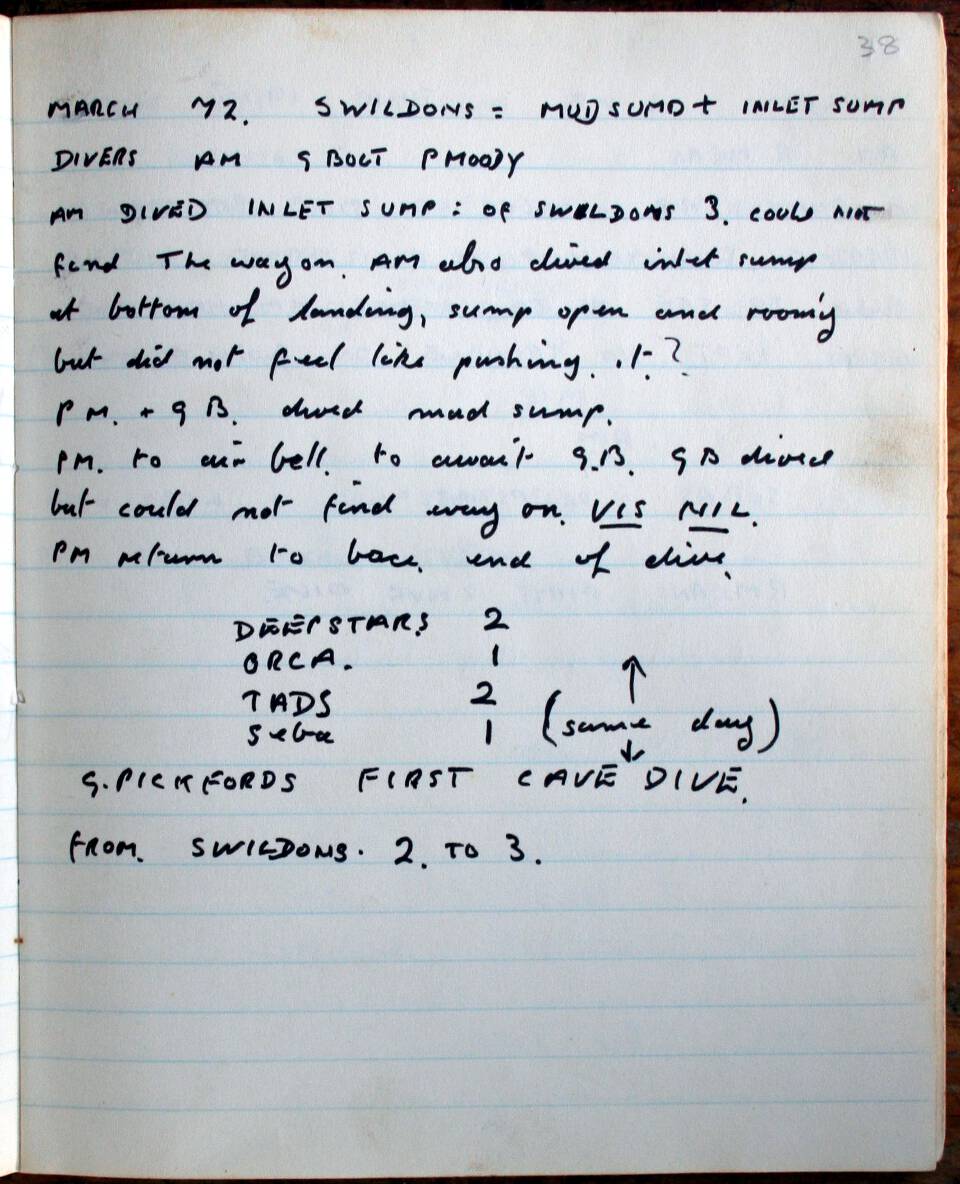 38
MARCH 72. SWILDONS = MUD SUMP + INLET SUMP
DIVERS AM G BOLT P MOODY
AM DIVED INLET SUMP: OF SWILDONS 3. COULD NOT
find The way on. AM also dived inlet sump
at bottom of landing, sump open and roomy
but did not feel like pushing. it?
P M. + G B. dived mud sump.
PM. to air bell. to await G.B. G B dived
but could not find way on. VIS NIL.
PM return to base. end of dive.
DEEPSTARS 2
ORCA. 1
TADS 2
Seba 1 (same day)
G. PICKFORDS FIRST CAVE DIVE.
FROM. SWILDONS. 2. TO 3.